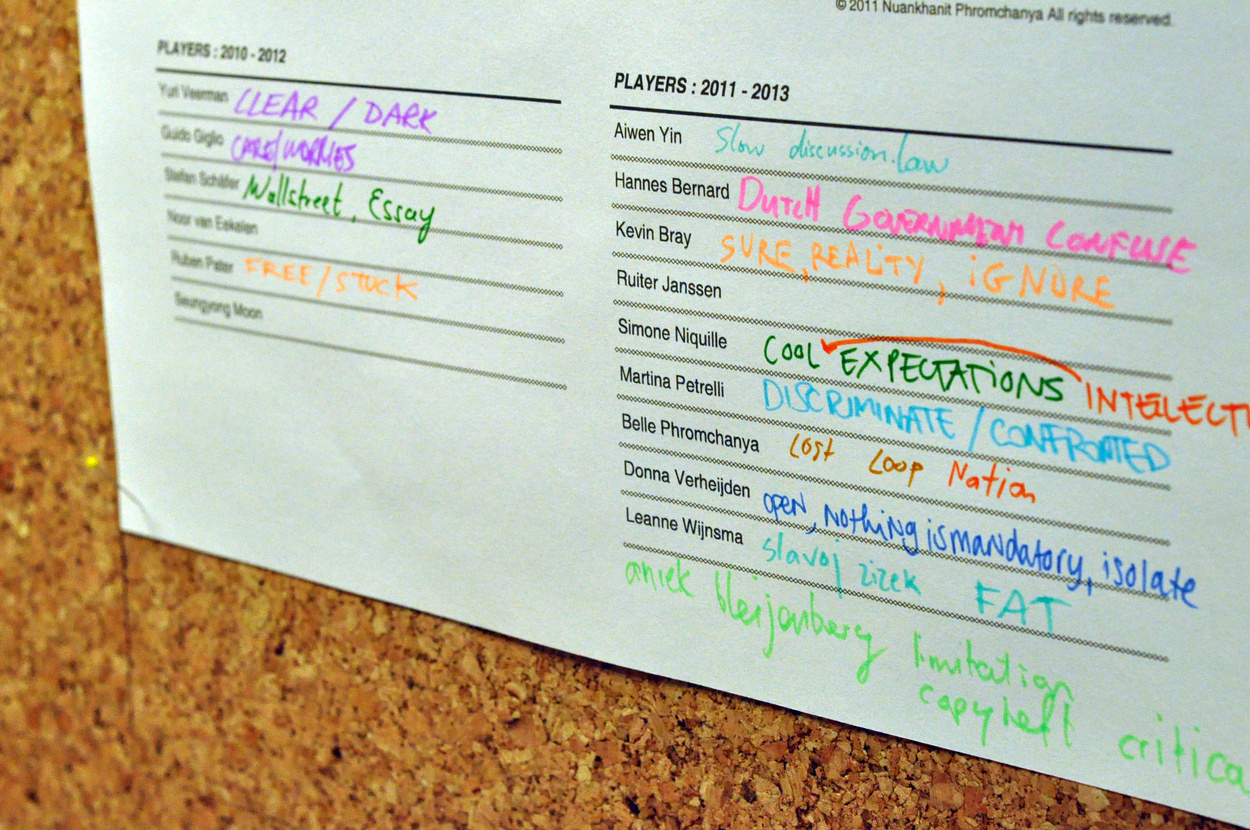 © 2011 Nuankhanit Phromchanya All rights reserved.
PLAYERS : 2010 - 2012
Yuri Veerman CLEAR / DARK
Guido Giglio CARE/WORRIES
Stefan Schäfer Wallstreet, Essay
Noor van Eekelen
Ruben Pater FREE/STOCK
Seungyong Moon
PLAYERS : 2011 - 2013
Aiwen Yin Slow discussion.law
Hannes Bernard DUTCH GOVERNMENT CONFUSE
Kevin Bray SURE, REALITY, iGNORE
Ruiter Janssen
Simone Niquille COOL EXPECTATIONS
Martina Petrelli DISCRIMINATE / CONFRONTED
Belle Phromchanya Lost Loop Nation
Donna Verheijden open, nothing is mandatory, isolate
Leanne Wijnsma slavoj zizek FAT
aniek bleijenberg limitation
copyleft